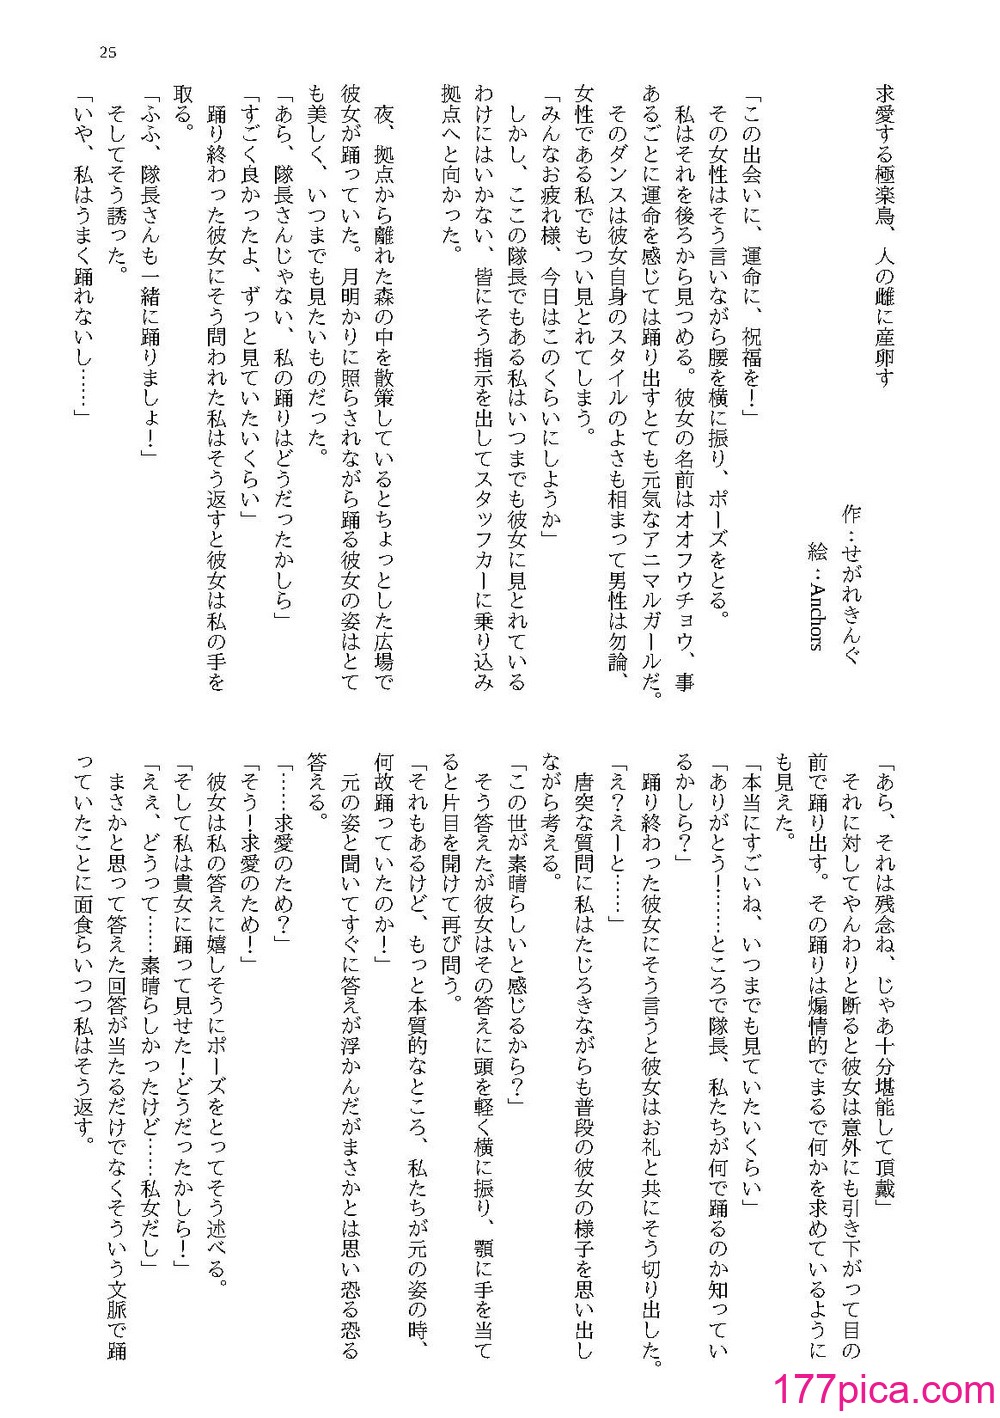 25
求愛する極楽鳥、人の雌に産卵す
作：せがれきんぐ
絵：Anchors
「この出会いに、運命に、祝福を！」
その女性はそう言いながら腰を横に振り、ポーズをとる。
私はそれを後ろから見つめる。彼女の名前はオオフウチョウ、事
あるごとに運命を感じては踊り出すとても元気なアニマルガールだ。
そのダンスは彼女自身のスタイルのよさも相まって男性は勿論、
女性である私でもつい見とれてしまう。
「みんなお疲れ様、今日はこのくらいにしようか」
しかし、ここの隊長でもある私はいつまでも彼女に見とれている
わけにはいかない、皆にそう指示を出してスタッフカーに乗り込み
拠点へと向かった。
夜、拠点から離れた森の中を散策しているとちょっとした広場で
彼女が踊っていた。月明かりに照らされながら踊る彼女の姿はとて
も美しく、いつまでも見たいものだった。
「あら、隊長さんじゃない、私の踊りはどうだったかしら」
「すごく良かったよ、ずっと見ていたいくらい」
踊り終わった彼女にそう問われた私はそう返すと彼女は私の手を
取る。
「ふふ、隊長さんも一緒に踊りましょ！」
そしてそう誘った。
「いや、私はうまく踊れないし……」
「あら、それは残念ね、じゃあ十分堪能して頂戴」
それに対してやんわりと断ると彼女は意外にも引き下がって目の
前で踊り出す。その踊りは煽情的でまるで何かを求めているように
も見えた。
「本当にすごいね、いつまでも見ていたいくらい」
「ありがとう！……ところで隊長、私たちが何で踊るのか知ってい
るかしら？」
踊り終わった彼女にそう言うと彼女はお礼と共にそう切り出した。
「え？えーと……」
唐突な質問に私はたじろきながらも普段の彼女の様子を思い出し
ながら考える。
「この世が素晴らしいと感じるから？」
そう答えたが彼女はその答えに頭を軽く横に振り、顎に手を当て
ると片目を開けて再び問う。
「それもあるけど、もっと本質的なところ、私たちが元の姿の時、
何故踊っていたのか！」
元の姿と聞いてすぐに答えが浮かんだがまさかとは思い恐る恐る
答える。
「……求愛のため？」
「そう！求愛のため！」
彼女は私の答えに嬉しそうにポーズをとってそう述べる。
「そして私は貴女に踊って見せた！どうだったかしら！」
「ええ、どうって……素晴らしかったけど……私女だし」
まさかと思って答えた回答が当たるだけでなくそういう文脈で踊
っていたことに面食らいつつ私はそう返す。
177pica.com